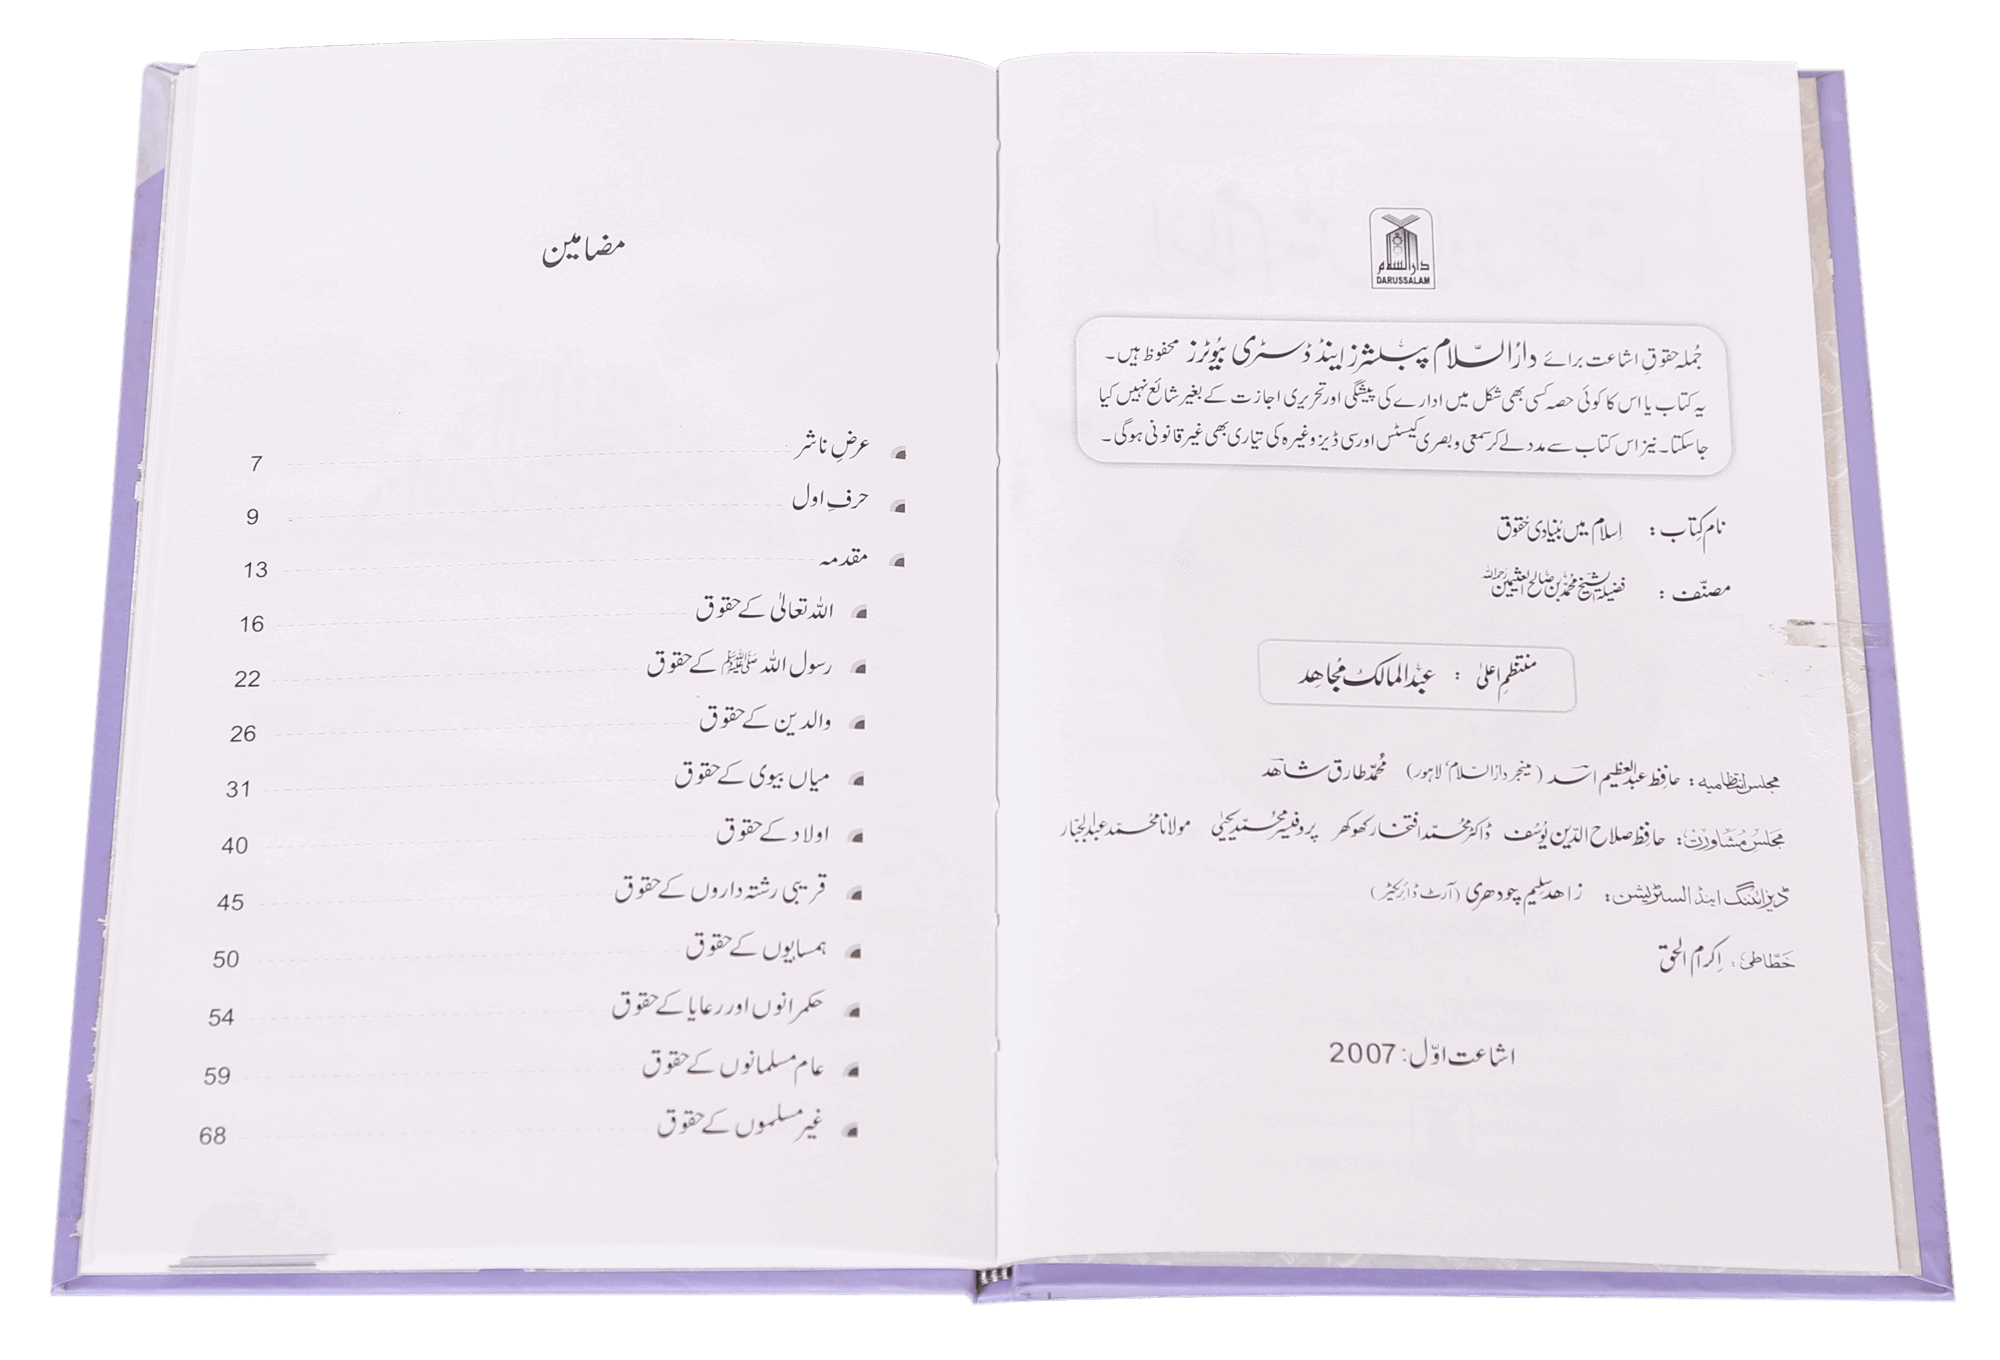 دار السلام
DARUSSALAM
جُملہ حقوقِ اشاعت برائے دارُ السّلام پبلشرز اینڈ ڈسٹری بیُوٹرز محفوظ ہیں۔
یہ کتاب یا اس کا کوئی حصہ کسی بھی شکل میں ادارے کی پیشگی اور تحریری اجازت کے بغیر شائع نہیں کیا
جاسکتا۔ نیز اس کتاب سے مدد لے کر سمعی و بصری کیسٹس اور سی ڈیز وغیرہ کی تیاری بھی غیر قانونی ہوگی۔
نام کِتاب : اِسلام میں بُنیادی حُقوق
مصنّف : فضیلۃ الشیخ محمّد بن صالح العثیمین رحمہ اللہ
منتظمِ اعلیٰ : عبدُ المالک مُجاھِد
مجلس انتظامیہ : حافظ عبدالعظیم اسد (مینجر دارُ السّلام، لاہور) محُمّد طارق شاھد
مجلس مُشاورت : حافِظ صلاح الدّین یُوسُف ڈاکٹر محُمّد افتخار کھوکھر پروفیسر محُمّد یحییٰ مولانا محُمّد عبدالجبّار
ڈیزائننگ اینڈ السٹریشن : زاھد سلِیم چودھری (آرٹ ڈائریکٹر)
خطّاطی : اِکرام الحق
اشاعت اوّل : 2007
مضامین
عرضِ ناشر 7
حرفِ اول 9
مقدمہ 13
اللہ تعالیٰ کے حقوق 16
رسول اللہ ﷺ کے حقوق 22
والدین کے حقوق 26
میاں بیوی کے حقوق 31
اولاد کے حقوق 40
قریبی رشتہ داروں کے حقوق 45
ہمسایوں کے حقوق 50
حکمرانوں اور رعایا کے حقوق 54
عام مسلمانوں کے حقوق 59
غیر مسلموں کے حقوق 68